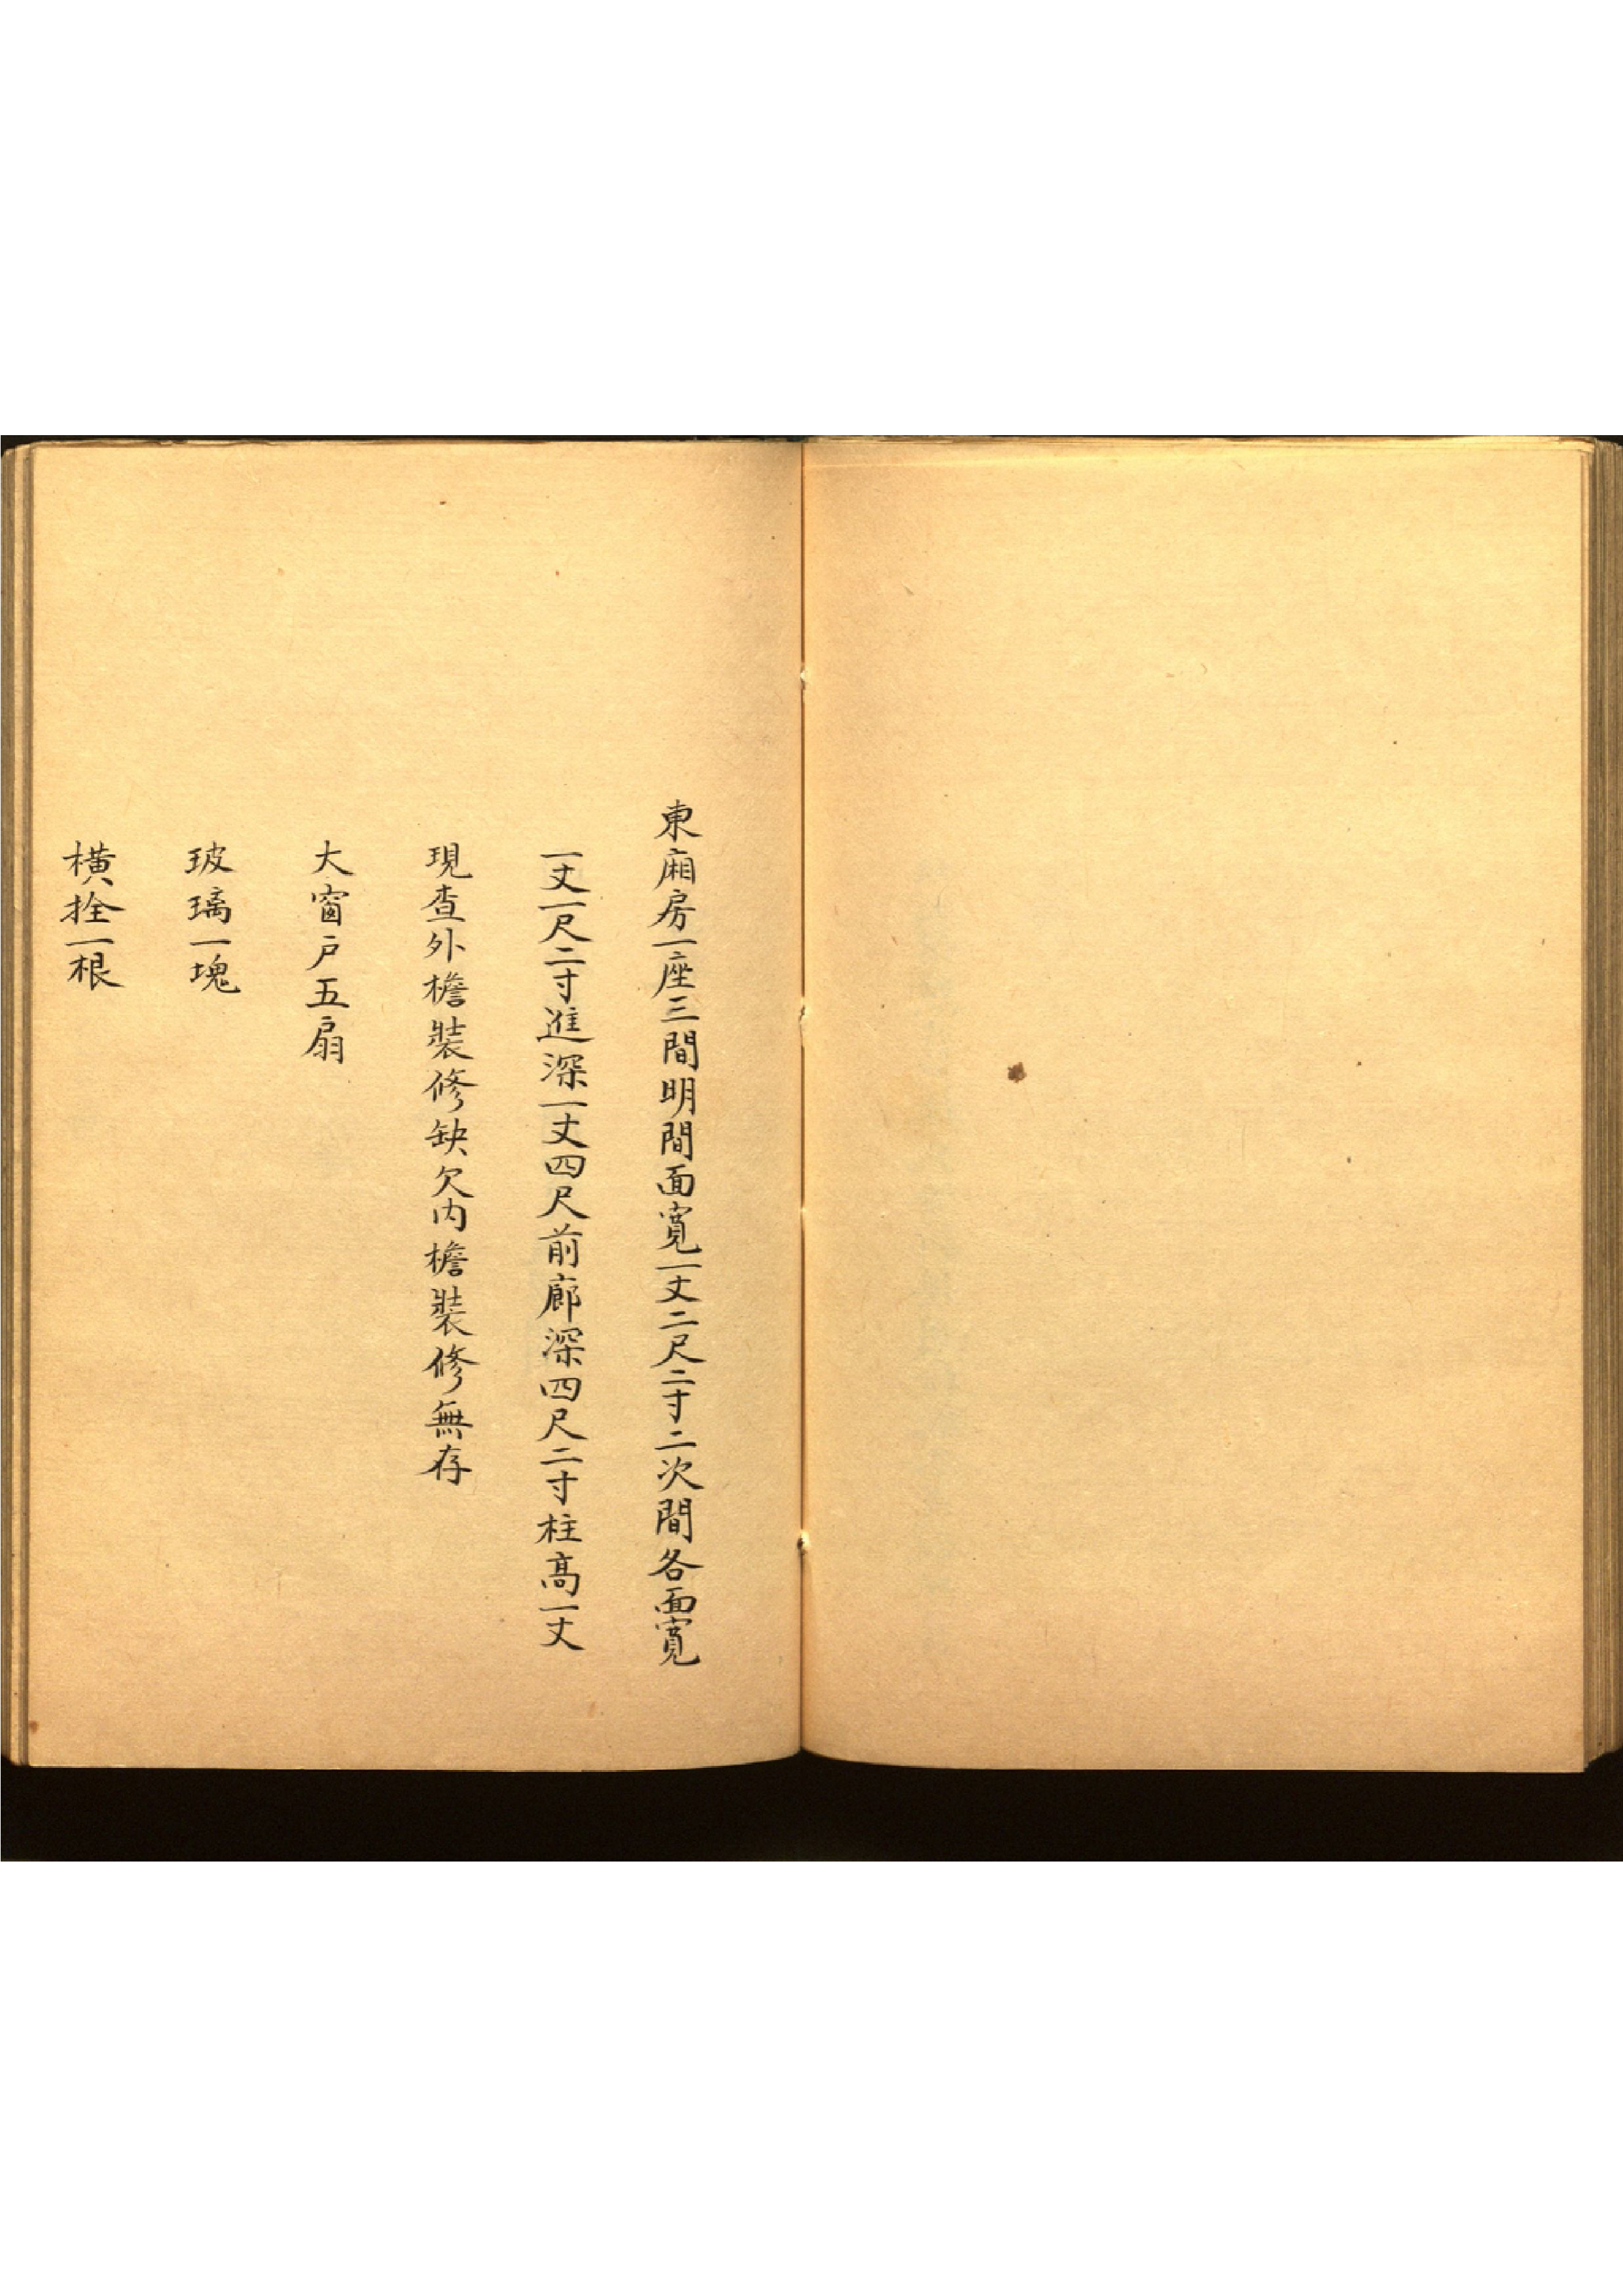 東廂房一座三間明間面寬一丈二尺二寸二次間各面寬
一丈一尺二寸進深一丈四尺前廊深四尺二寸柱高一丈
現查外檐裝修缺欠內檐裝修無存
大窗戶五扇
玻璃一塊
橫拴一根